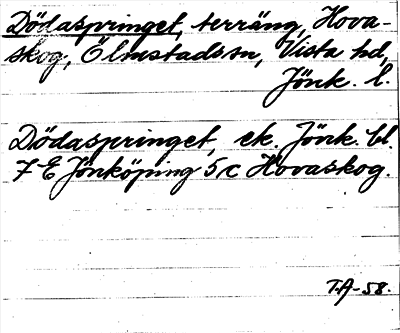 Dödaspringet, terräng, Hova-
skog, Ölmstads sn, Vista hd,
Jönk. l.
Dödaspringet, ek. Jönk. bl
7 E Jönköping 5 c Hovaskog.
T.A-58.